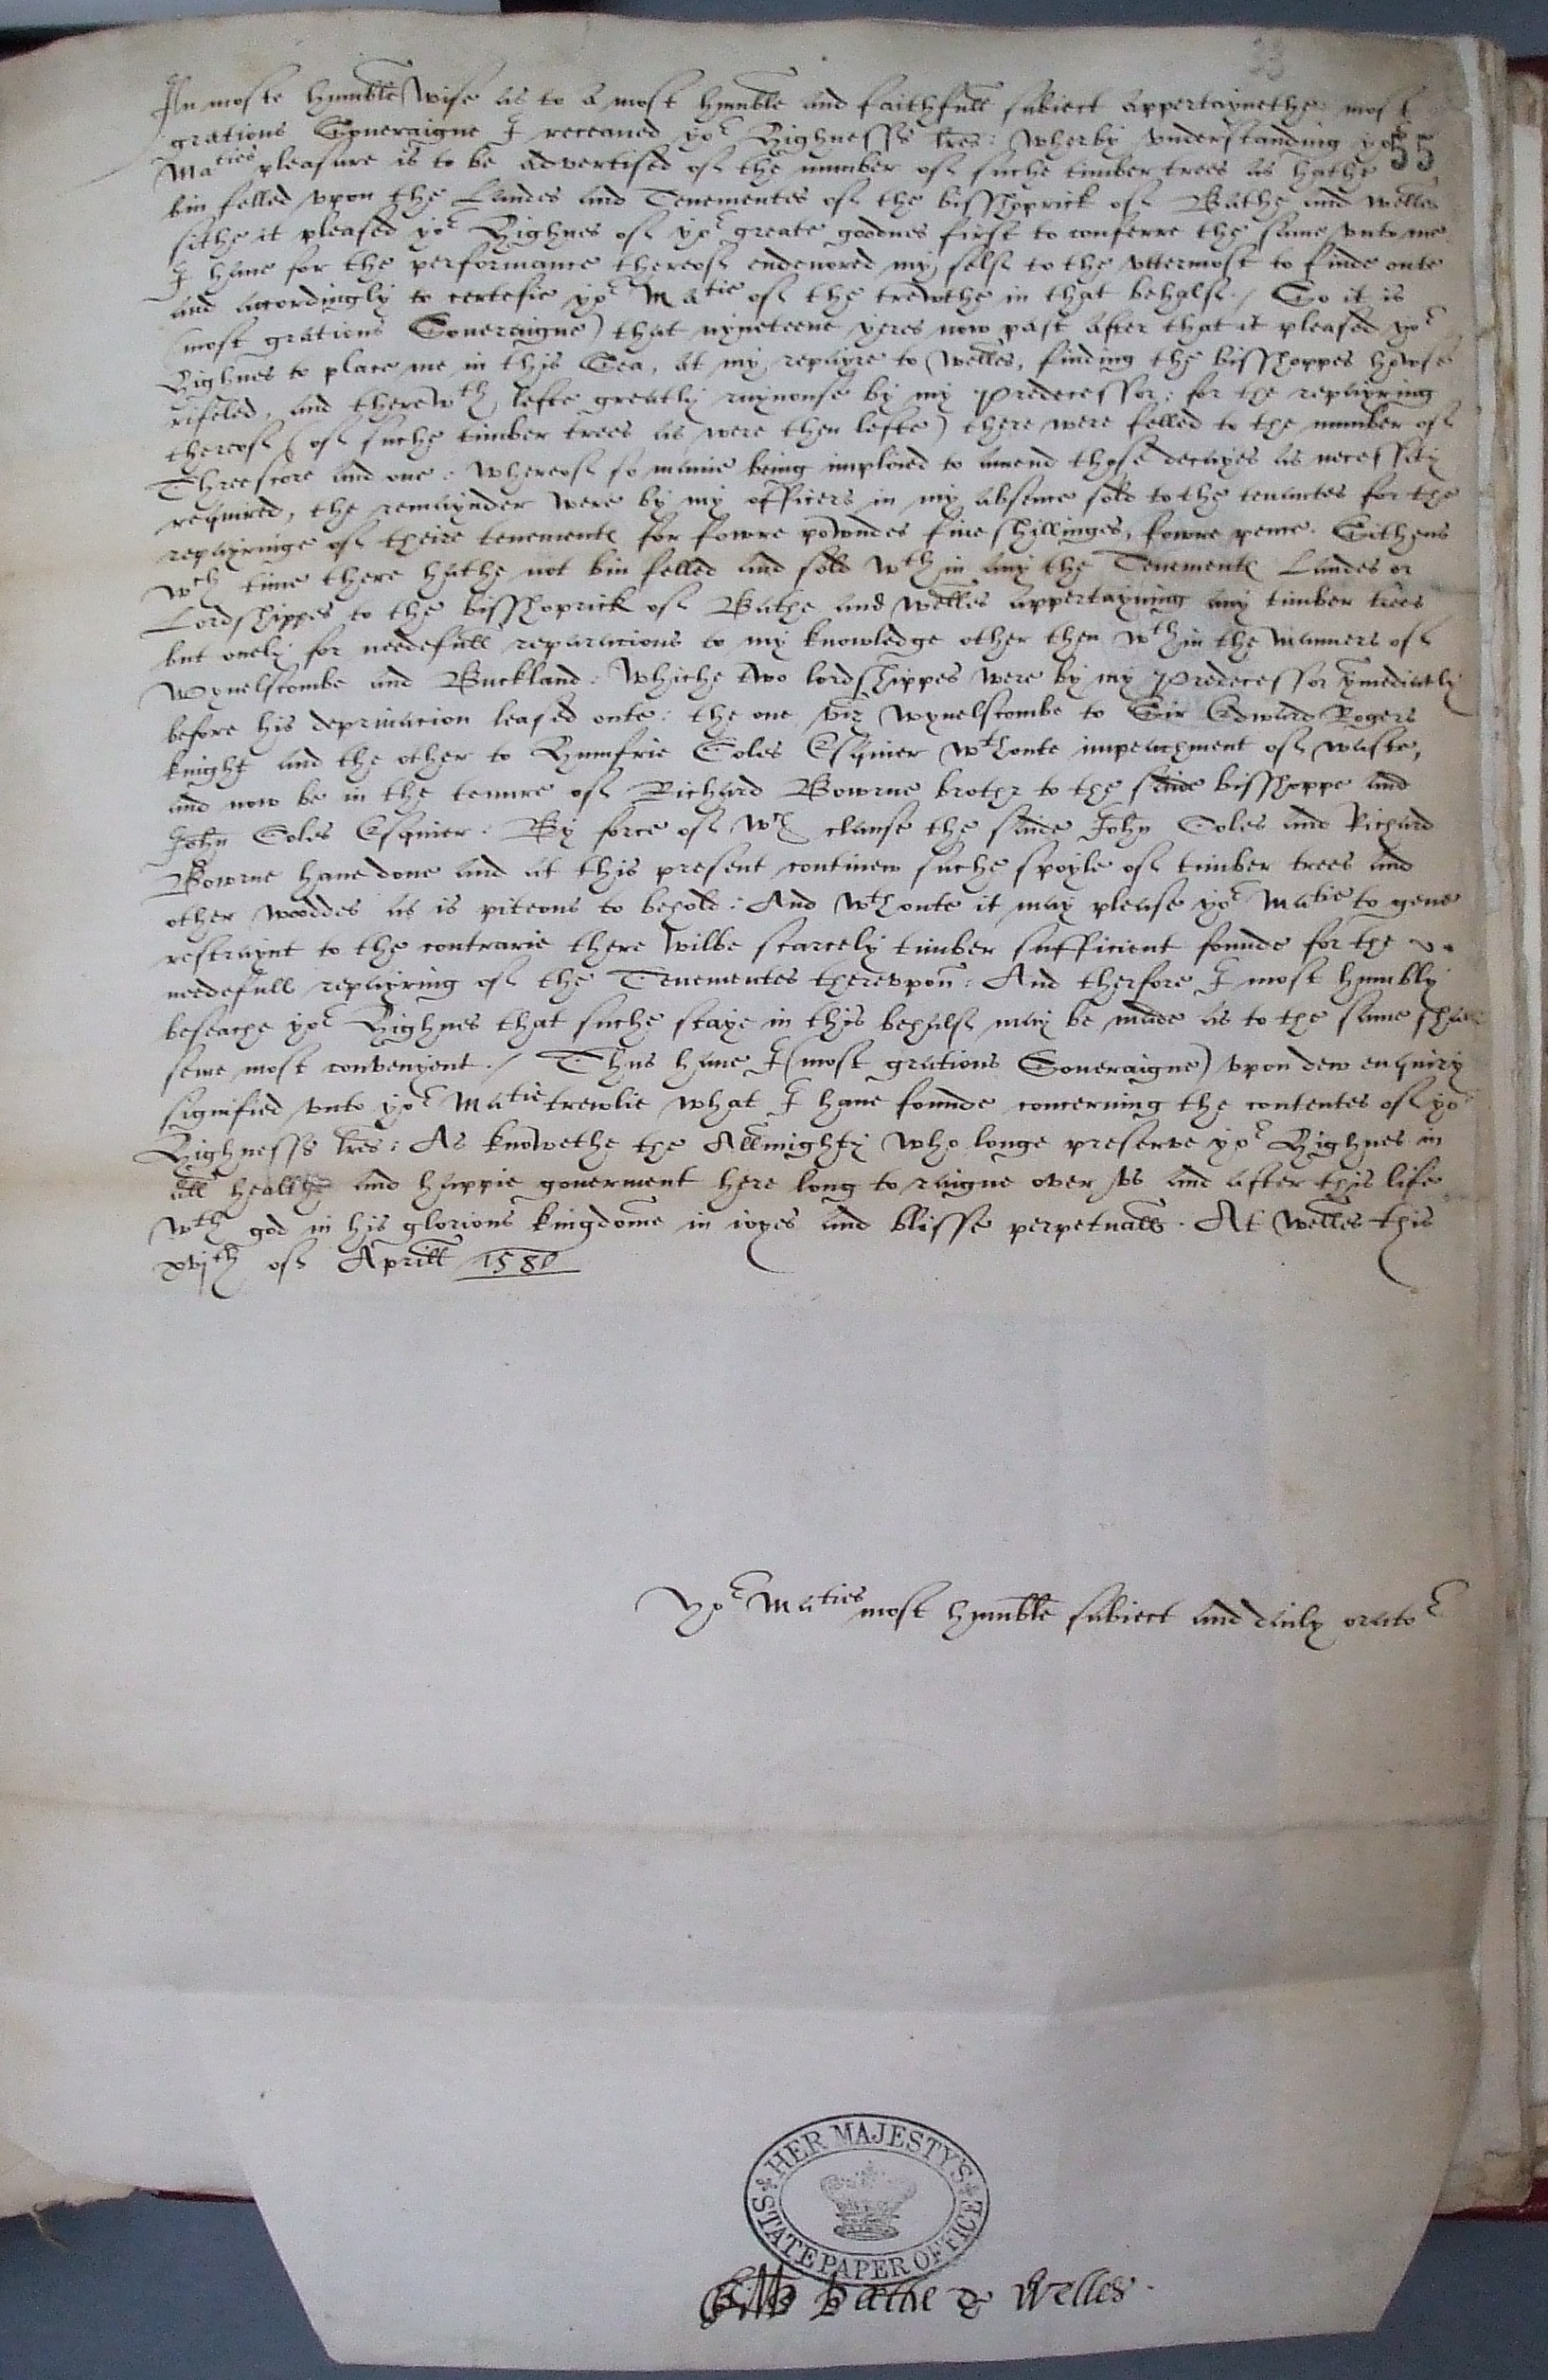 33
In moste humble wise as to a most humble and faithfull subiect appertaynethe most
gratious Soueraigne I receaued yor Highnesse lres: wherby vnderstanding yor
55
Maties pleasure is to be advertised of the number of suche timber trees as hathe
bin felled vpon the Landes and Tenementes of the bisshoprick of Bathe and Welles
sithe it pleased yor Highnes of yor greate goodnes first to conferre the same vnto me
I haue for the performance thereof endeuored my self to the vttermost to finde oute
and accordingly to certefie yor Matie of the trewthe in that behalf./ So it is
(most gratious Soueraigne) that nyneteene yeres now past after that it pleased yor
Highnes to place me in this Sea, at my repayre to Welles, finding the bisshoppes howse
rifeled, and therewth lefte greatly ruynouse by my Predecessor: for the repayring
thereof (of suche timber trees as were then lefte) there were felled to the number of
Threescore and one: Whereof so manie being imploied to amend those decayes as necessity
required, the remaynder were by my officers in my absence sold to the tenantes for the
repayringe of theire tenementes for fowre powndes fiue shillinges, fowre pence. Sithens
wch time there hathe not bin felled and sold wthin any the Tenementes Landes or
Lordshippes to the bisshoprick of Bathe and Welles appertayning any timber trees
but onely for needefull reparacions to my knowledge other then wthin the manners of
Wyuelscombe and Buckland: Whiche two lordshippes were by my Predecessor ymediatly
before his depriuacion leased oute: the one viz Wyuelscombe to Sir Edward Rogers
knight and the other to Humfrie Coles Esquier wthoute impeachment of waste,
and now be in the tenure of Richard Bowrne brother to the saide bisshoppe and
John Coles Esquier: By force of wch clause the saide John Coles and Richard
Bowrne haue done and at this present continew suche spoyle of timber trees and
other wooddes as is piteous to behold: And wthoute it may please yor Matie to geue
restraynt to the contrarie there wilbe scarcely timber sufficient founde for the
needefull repayring of the Tenementes therevpon: And therfore I most humbly
beseache yor Highnes that suche staye in this behalf may be made as to the same shall
seme most convenyent./ Thus haue I (most gratious Soueraigne) vpon dew enquiry
signified vnto yor Matie trewlie what I haue founde concerning the contentes of yor
Highnesse lres: As knowethe the Allmighty who longe preserve yor Highnes in
all healthe and happie gouerment here long to raigne over vs and after this life
wth god in his glorious kingdome in ioyes and blisse perpetuall. At Welles this
xvjth of Aprill 1580
Yor Maties most humble subiect and daily orator
HER MAJESTY'S STATE PAPER OFFICE
Bathe & Welles.